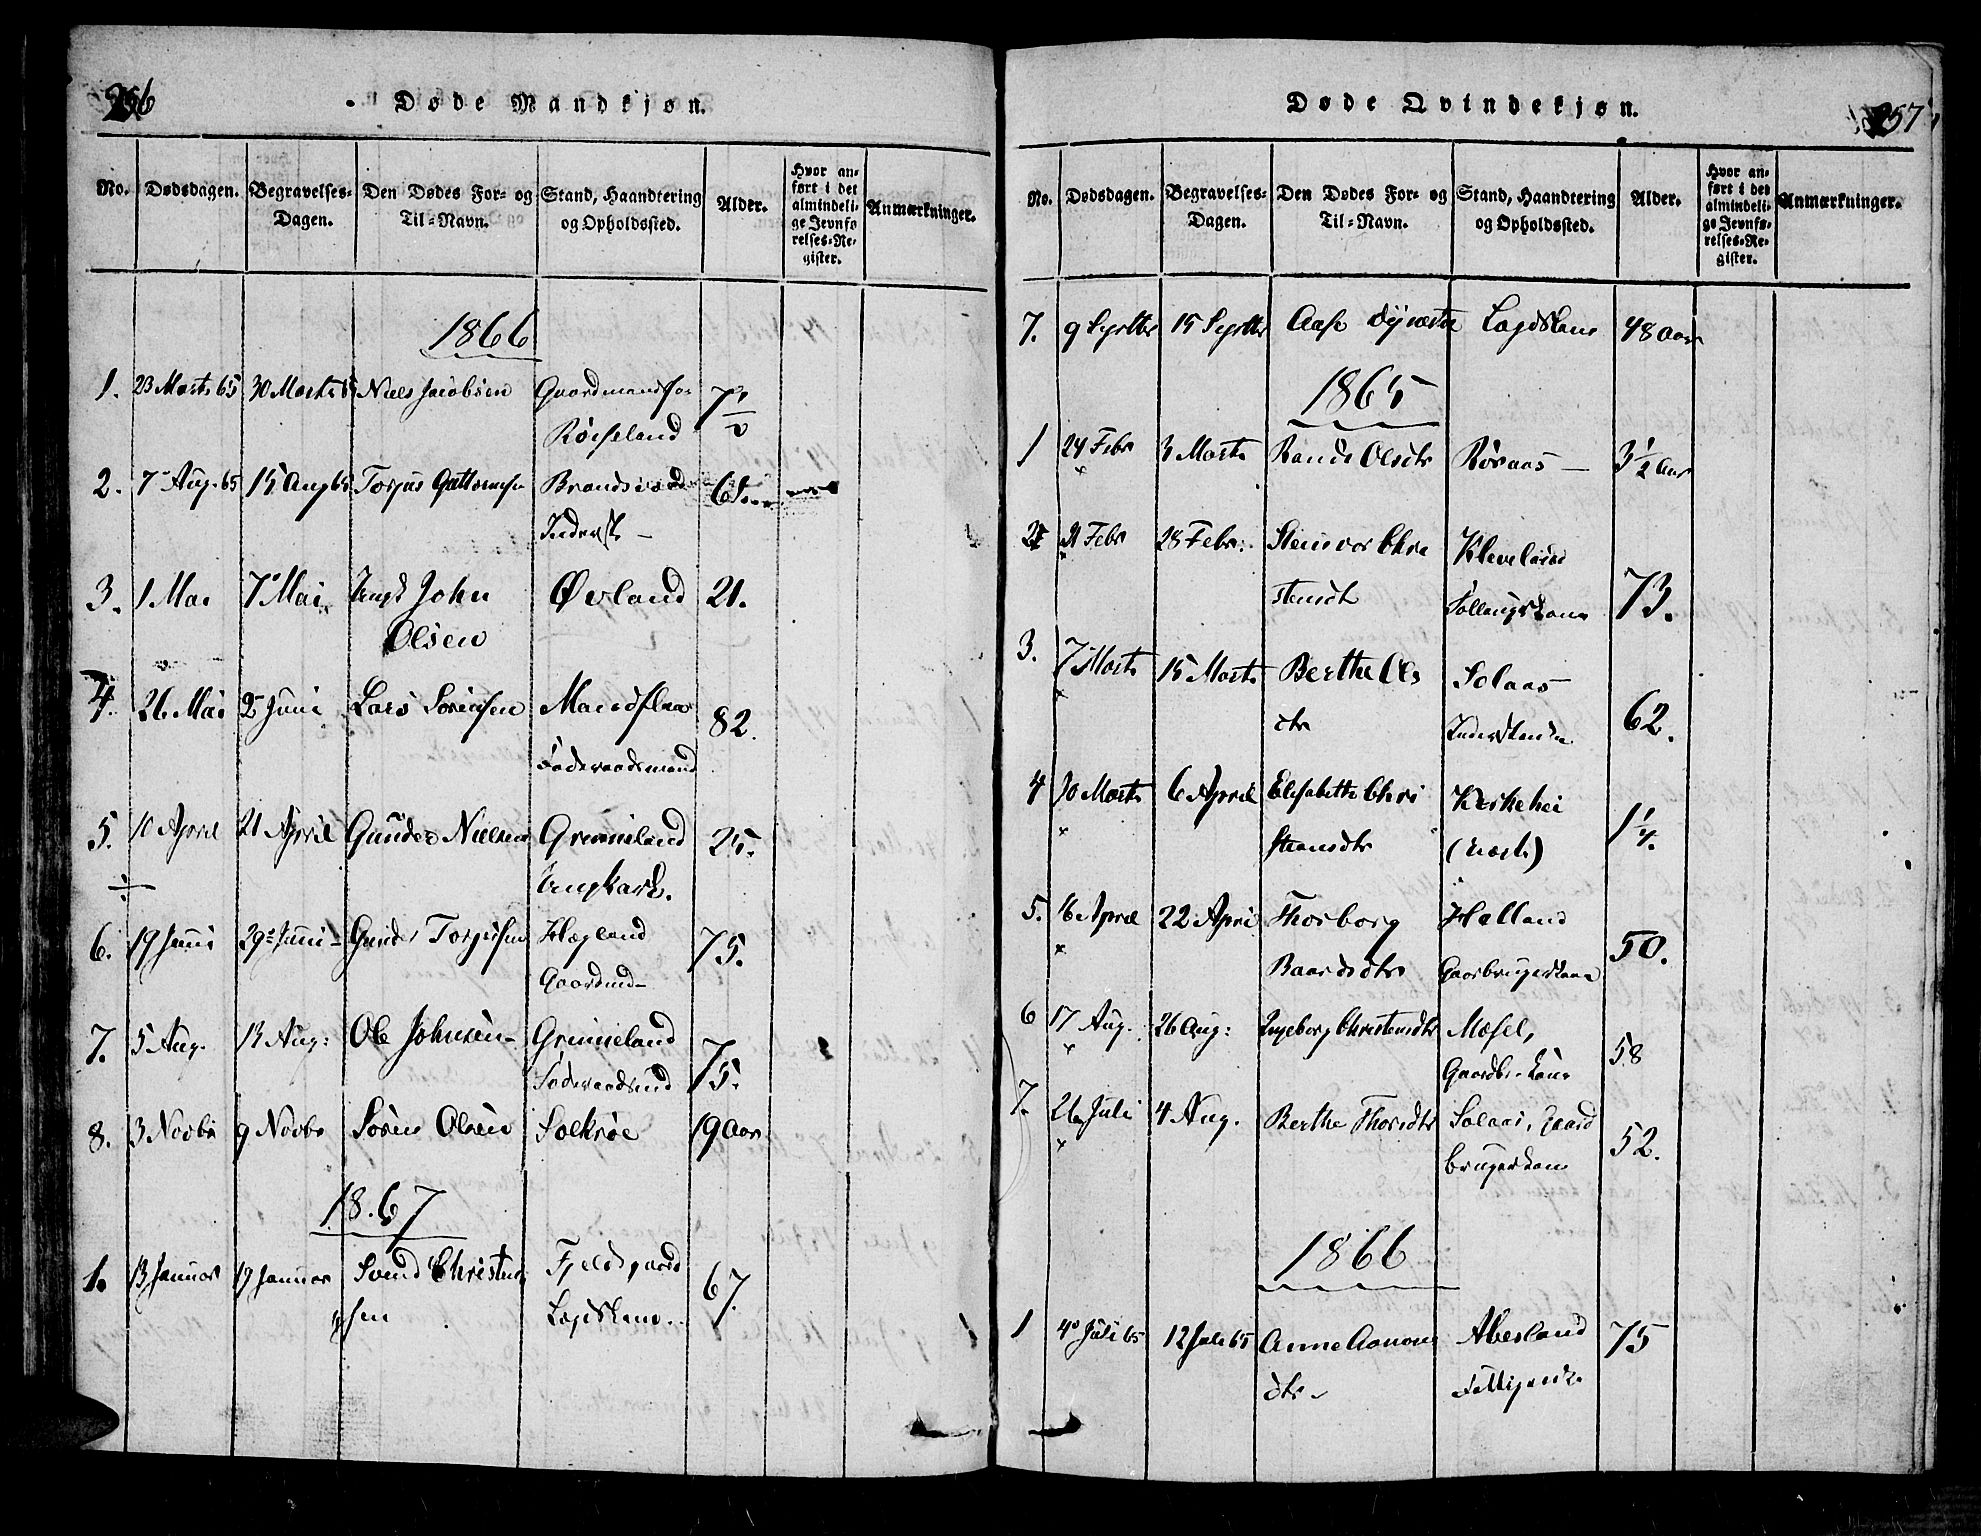 256
Døde Mandkjøn.
No. Dødsdagen. Begravelses-Dagen. Den Dødes For- og Til-Navn. Stand, Haandtering og Opholdssted. Alder. Hvor anført i det almindelige Jevnførelses-Register. Anmærkninger.
1866
1. 23 Marts 65 30 Marts Niels Jacobsen Gaardmands
Røiseland
2. 7 Aug. 65 15 Aug 65 Torjus Guttormsen
3. 1 Mai 7 Mai John Øvland 21.
Olsen
4. 26 Mai 2 Juni Lars Sørensen Mandflaa 82.
Føderaadsmand
5. 10 April 21 April Gunder Nielsen Grimeland 25.
Ungkarl.
6. 19 Juni 29 Juni Gunder Torjusen Hægland 75.
Gaardmd
7. 5 Aug. 13 Aug: Ole Johnsen Grimeland 75.
Føderaadsmd
8. 3 Novbr 9 Novbr Søren Olsen 19 Aar
1867
1. 13 Januar 19 Januar Svend Christen Fjeldsgaard 67.
sen
257
Døde Qvindekjøn.
No. Dødsdagen. Begravelses-Dagen. Den Dødes For- og Til-Navn. Stand, Haandtering og Opholdssted. Alder. Hvor anført i det almindelige Jevnførelses-Register. Anmærkninger.
7. 9 Septbr 15 Septbr Aase 48 Aar
1865
1 24 Febr 3 Marts Olsdtr Røraas 3 1/2 Aar
2 21 Febr 28 Febr: Stenvor Chri Kleveland 73.
stensdtr
3. 7 Marts 15 Marts Berthe Ols Solaas 62.
dtr
4 30 Marts 6 April Elisabeth Chri Kirkehei 1 1/4.
stensdtr
5. 16 April 22 April Thorborg Helland 50.
Baardsdtr Gaarbrugerkone
6 17 Aug. 26 Aug: Ingeborg Christensdtr Mosel, 58
Gaardbr. kone
7. 26 Juli 4 Aug. Berthe Thorsdtr Solaas, Gaard 52.
brugerkone
1866
1 4 Juli 65 12 Juli 65 Anne Aanons Aberland 75
dtr